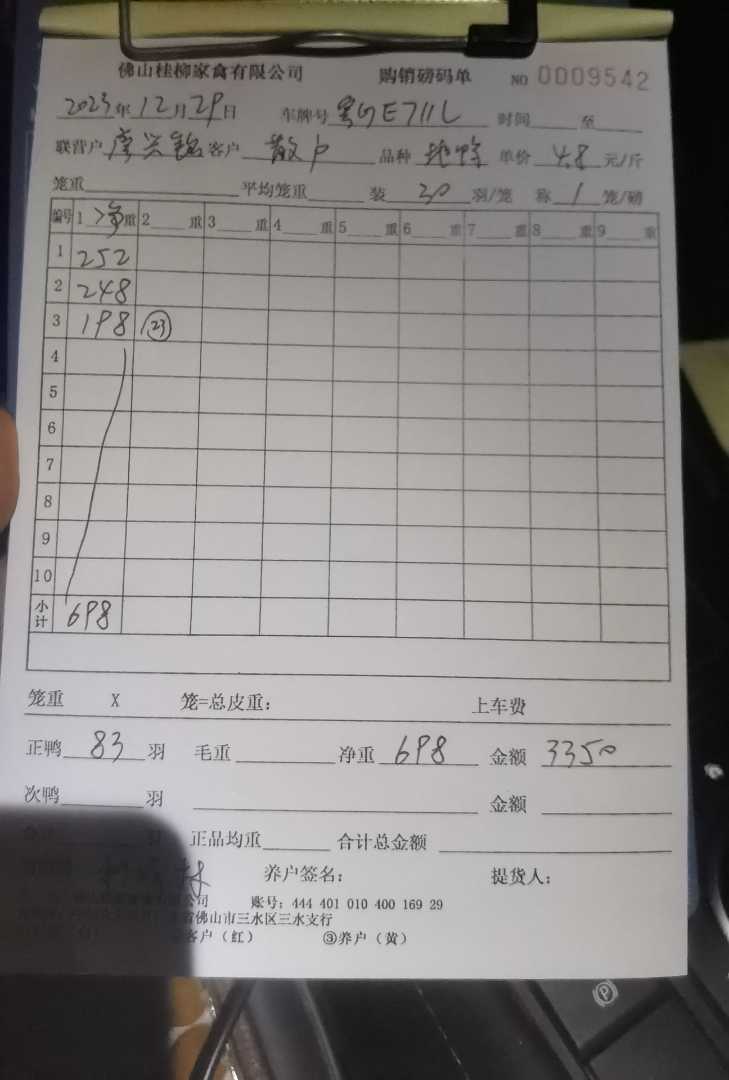 佛山桂柳家禽有限公司 购销磅码单 NO 0009542
2023年12月29日 车牌号 粤GE711L 时间 至
联营户 客户 散户 品种 单价 4.8 元/斤
笼重 平均笼重 装 30 羽/笼 称 1 笼/磅
编号 1 净重 2 重 3 重 4 重 5 重 6 重 7 重 8 重 9 重
1 252
2 248
3 198 (23)
4
5
6
7
8
9
10
小计 698
笼重 X 笼=总皮重: 上车费
正鸭 83 羽 毛重 净重 698 金额 3350
次鸭 羽 金额
羽 正品均重 合计总金额
养户签名: 提货人:
公司 账号: 444 401 010 400 169 29
省佛山市三水区三水支行
客户(红) ③养户(黄)